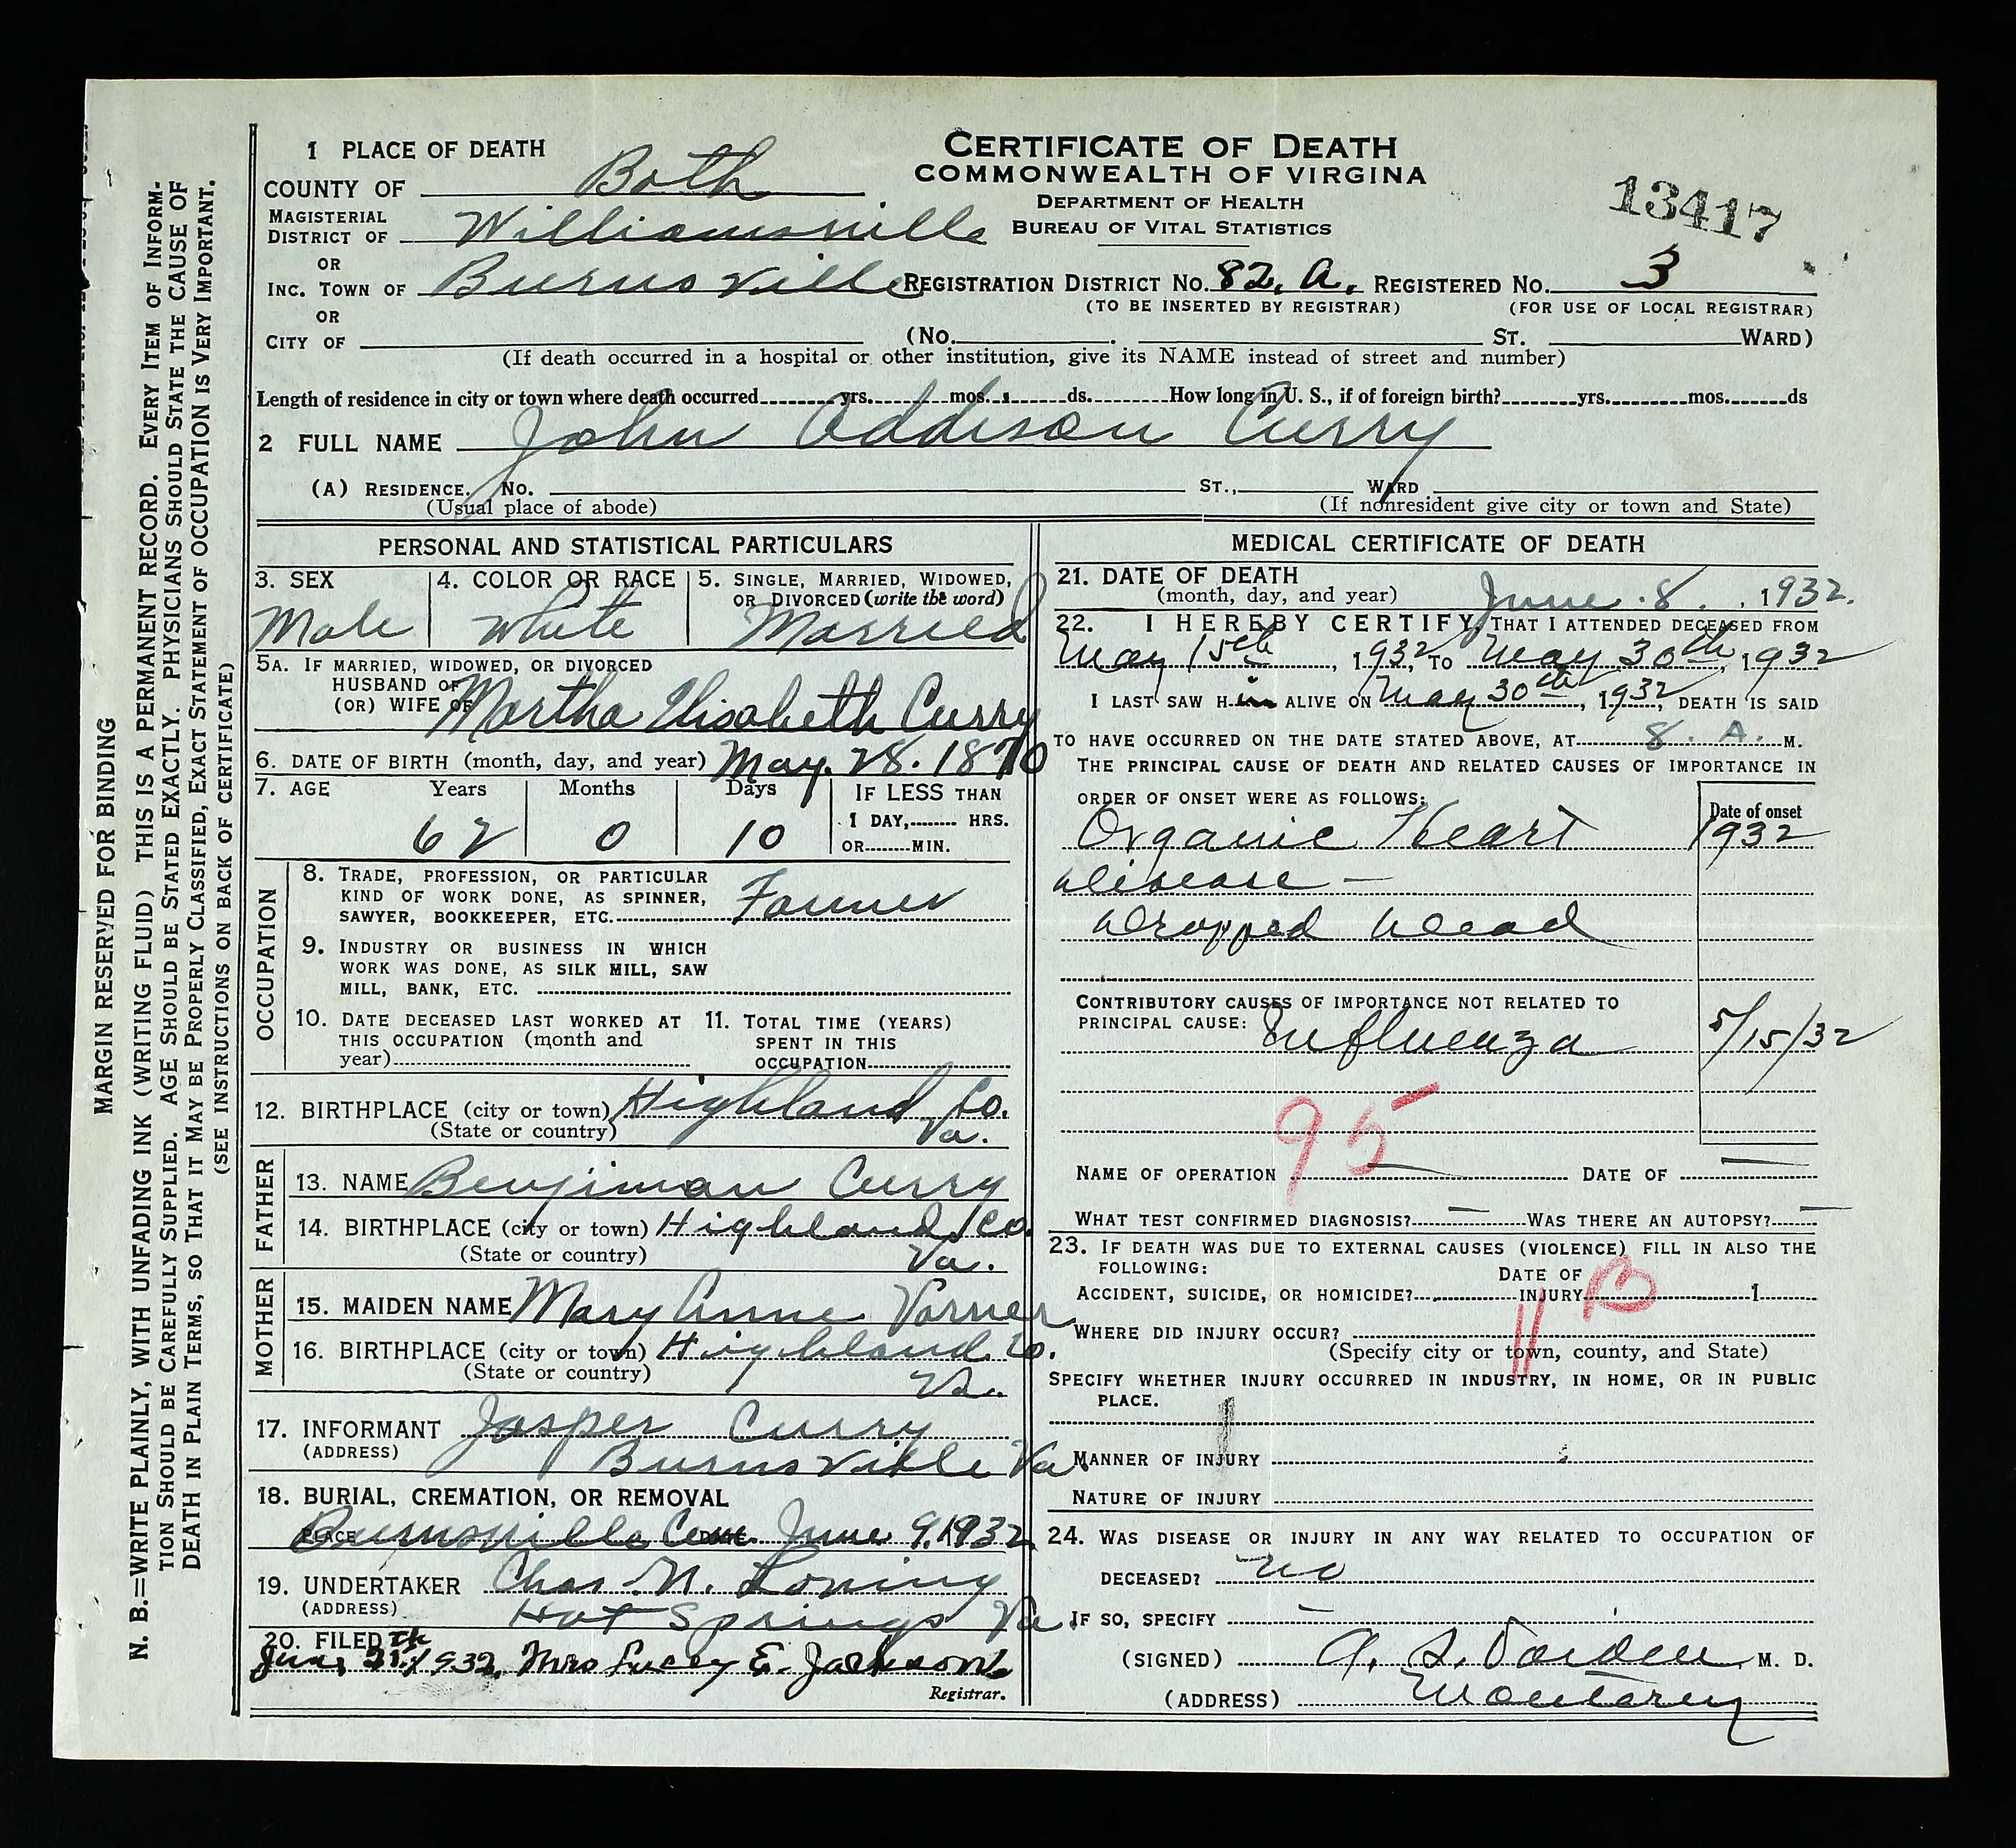 1 PLACE OF DEATH
COUNTY OF Bath
MAGISTERIAL DISTRICT OF Williamsville
OR
INC. TOWN OF Burnsville
OR
CITY OF (No. . ST. WARD)
(If death occurred in a hospital or other institution, give its NAME instead of street and number)
CERTIFICATE OF DEATH
COMMONWEALTH OF VIRGINA
DEPARTMENT OF HEALTH
BUREAU OF VITAL STATISTICS
13417
REGISTRATION DISTRICT No. 82, A. REGISTERED No. 3
(TO BE INSERTED BY REGISTRAR) (FOR USE OF LOCAL REGISTRAR)
Length of residence in city or town where death occurred yrs. mos. ds. How long in U. S., if of foreign birth? yrs. mos. ds
2 FULL NAME John Addison Curry
(A) RESIDENCE. No. ST., WARD
(Usual place of abode) (If nonresident give city or town and State)
PERSONAL AND STATISTICAL PARTICULARS
3. SEX Male
4. COLOR OR RACE White
5. SINGLE, MARRIED, WIDOWED, OR DIVORCED (write the word) Married
5A. IF MARRIED, WIDOWED, OR DIVORCED
HUSBAND OF
(OR) WIFE OF Martha Elisabeth Curry
6. DATE OF BIRTH (month, day, and year) May. 28. 1870
7. AGE Years Months Days IF LESS THAN
1 DAY, HRS.
62 0 10 OR MIN.
OCCUPATION
8. TRADE, PROFESSION, OR PARTICULAR
KIND OF WORK DONE, AS SPINNER,
SAWYER, BOOKKEEPER, ETC. Farmer
9. INDUSTRY OR BUSINESS IN WHICH
WORK WAS DONE, AS SILK MILL, SAW
MILL, BANK, ETC.
10. DATE DECEASED LAST WORKED AT THIS OCCUPATION (month and year)
11. TOTAL TIME (YEARS) SPENT IN THIS OCCUPATION
12. BIRTHPLACE (city or town) Highland Co.
(State or country) Va.
FATHER
13. NAME Benjiman Curry
14. BIRTHPLACE (city or town) Highland Co.
(State or country) Va.
MOTHER
15. MAIDEN NAME Mary Anne Varner
16. BIRTHPLACE (city or town) Highland Co.
(State or country) Va.
17. INFORMANT Jasper Curry
(ADDRESS) Burnsville Va.
18. BURIAL, CREMATION, OR REMOVAL
PLACE Burnsville Cem. DATE June 9, 1932
19. UNDERTAKER Chas. N. Loning
(ADDRESS) Hot Springs Va.
20. FILED
June 21th 1932, Mrs Lucy E.
Registrar.
MEDICAL CERTIFICATE OF DEATH
21. DATE OF DEATH
(month, day, and year) June. 8. , 1932.
22. I HEREBY CERTIFY, THAT I ATTENDED DECEASED FROM
May 15th, 1932, TO May 30th, 1932
I LAST SAW Him ALIVE ON May 30th, 1932, DEATH IS SAID
TO HAVE OCCURRED ON THE DATE STATED ABOVE, AT 8. A. M.
THE PRINCIPAL CAUSE OF DEATH AND RELATED CAUSES OF IMPORTANCE IN
ORDER OF ONSET WERE AS FOLLOWS: Date of onset
Organic Heart 1932
disease –
dropped dead
CONTRIBUTORY CAUSES OF IMPORTANCE NOT RELATED TO
PRINCIPAL CAUSE: Influenza 5/15/32
95
NAME OF OPERATION — DATE OF —
WHAT TEST CONFIRMED DIAGNOSIS? — WAS THERE AN AUTOPSY? —
23. IF DEATH WAS DUE TO EXTERNAL CAUSES (VIOLENCE) FILL IN ALSO THE
FOLLOWING:
ACCIDENT, SUICIDE, OR HOMICIDE? DATE OF INJURY 1
WHERE DID INJURY OCCUR?
(Specify city or town, county, and State)
SPECIFY WHETHER INJURY OCCURRED IN INDUSTRY, IN HOME, OR IN PUBLIC
PLACE.
MANNER OF INJURY
NATURE OF INJURY
24. WAS DISEASE OR INJURY IN ANY WAY RELATED TO OCCUPATION OF
DECEASED? no
IF SO, SPECIFY —
(SIGNED) M. D.
(ADDRESS) Monterey
MARGIN RESERVED FOR BINDING
N. B.=WRITE PLAINLY, WITH UNFADING INK (WRITING FLUID) THIS IS A PERMANENT RECORD. EVERY ITEM OF INFORM-
TION SHOULD BE CAREFULLY SUPPLIED. AGE SHOULD BE STATED EXACTLY. PHYSICIANS SHOULD STATE THE CAUSE OF
DEATH IN PLAIN TERMS, SO THAT IT MAY BE PROPERLY CLASSIFIED, EXACT STATEMENT OF OCCUPATION IS VERY IMPORTANT.
(SEE INSTRUCTIONS ON BACK OF CERTIFICATE)